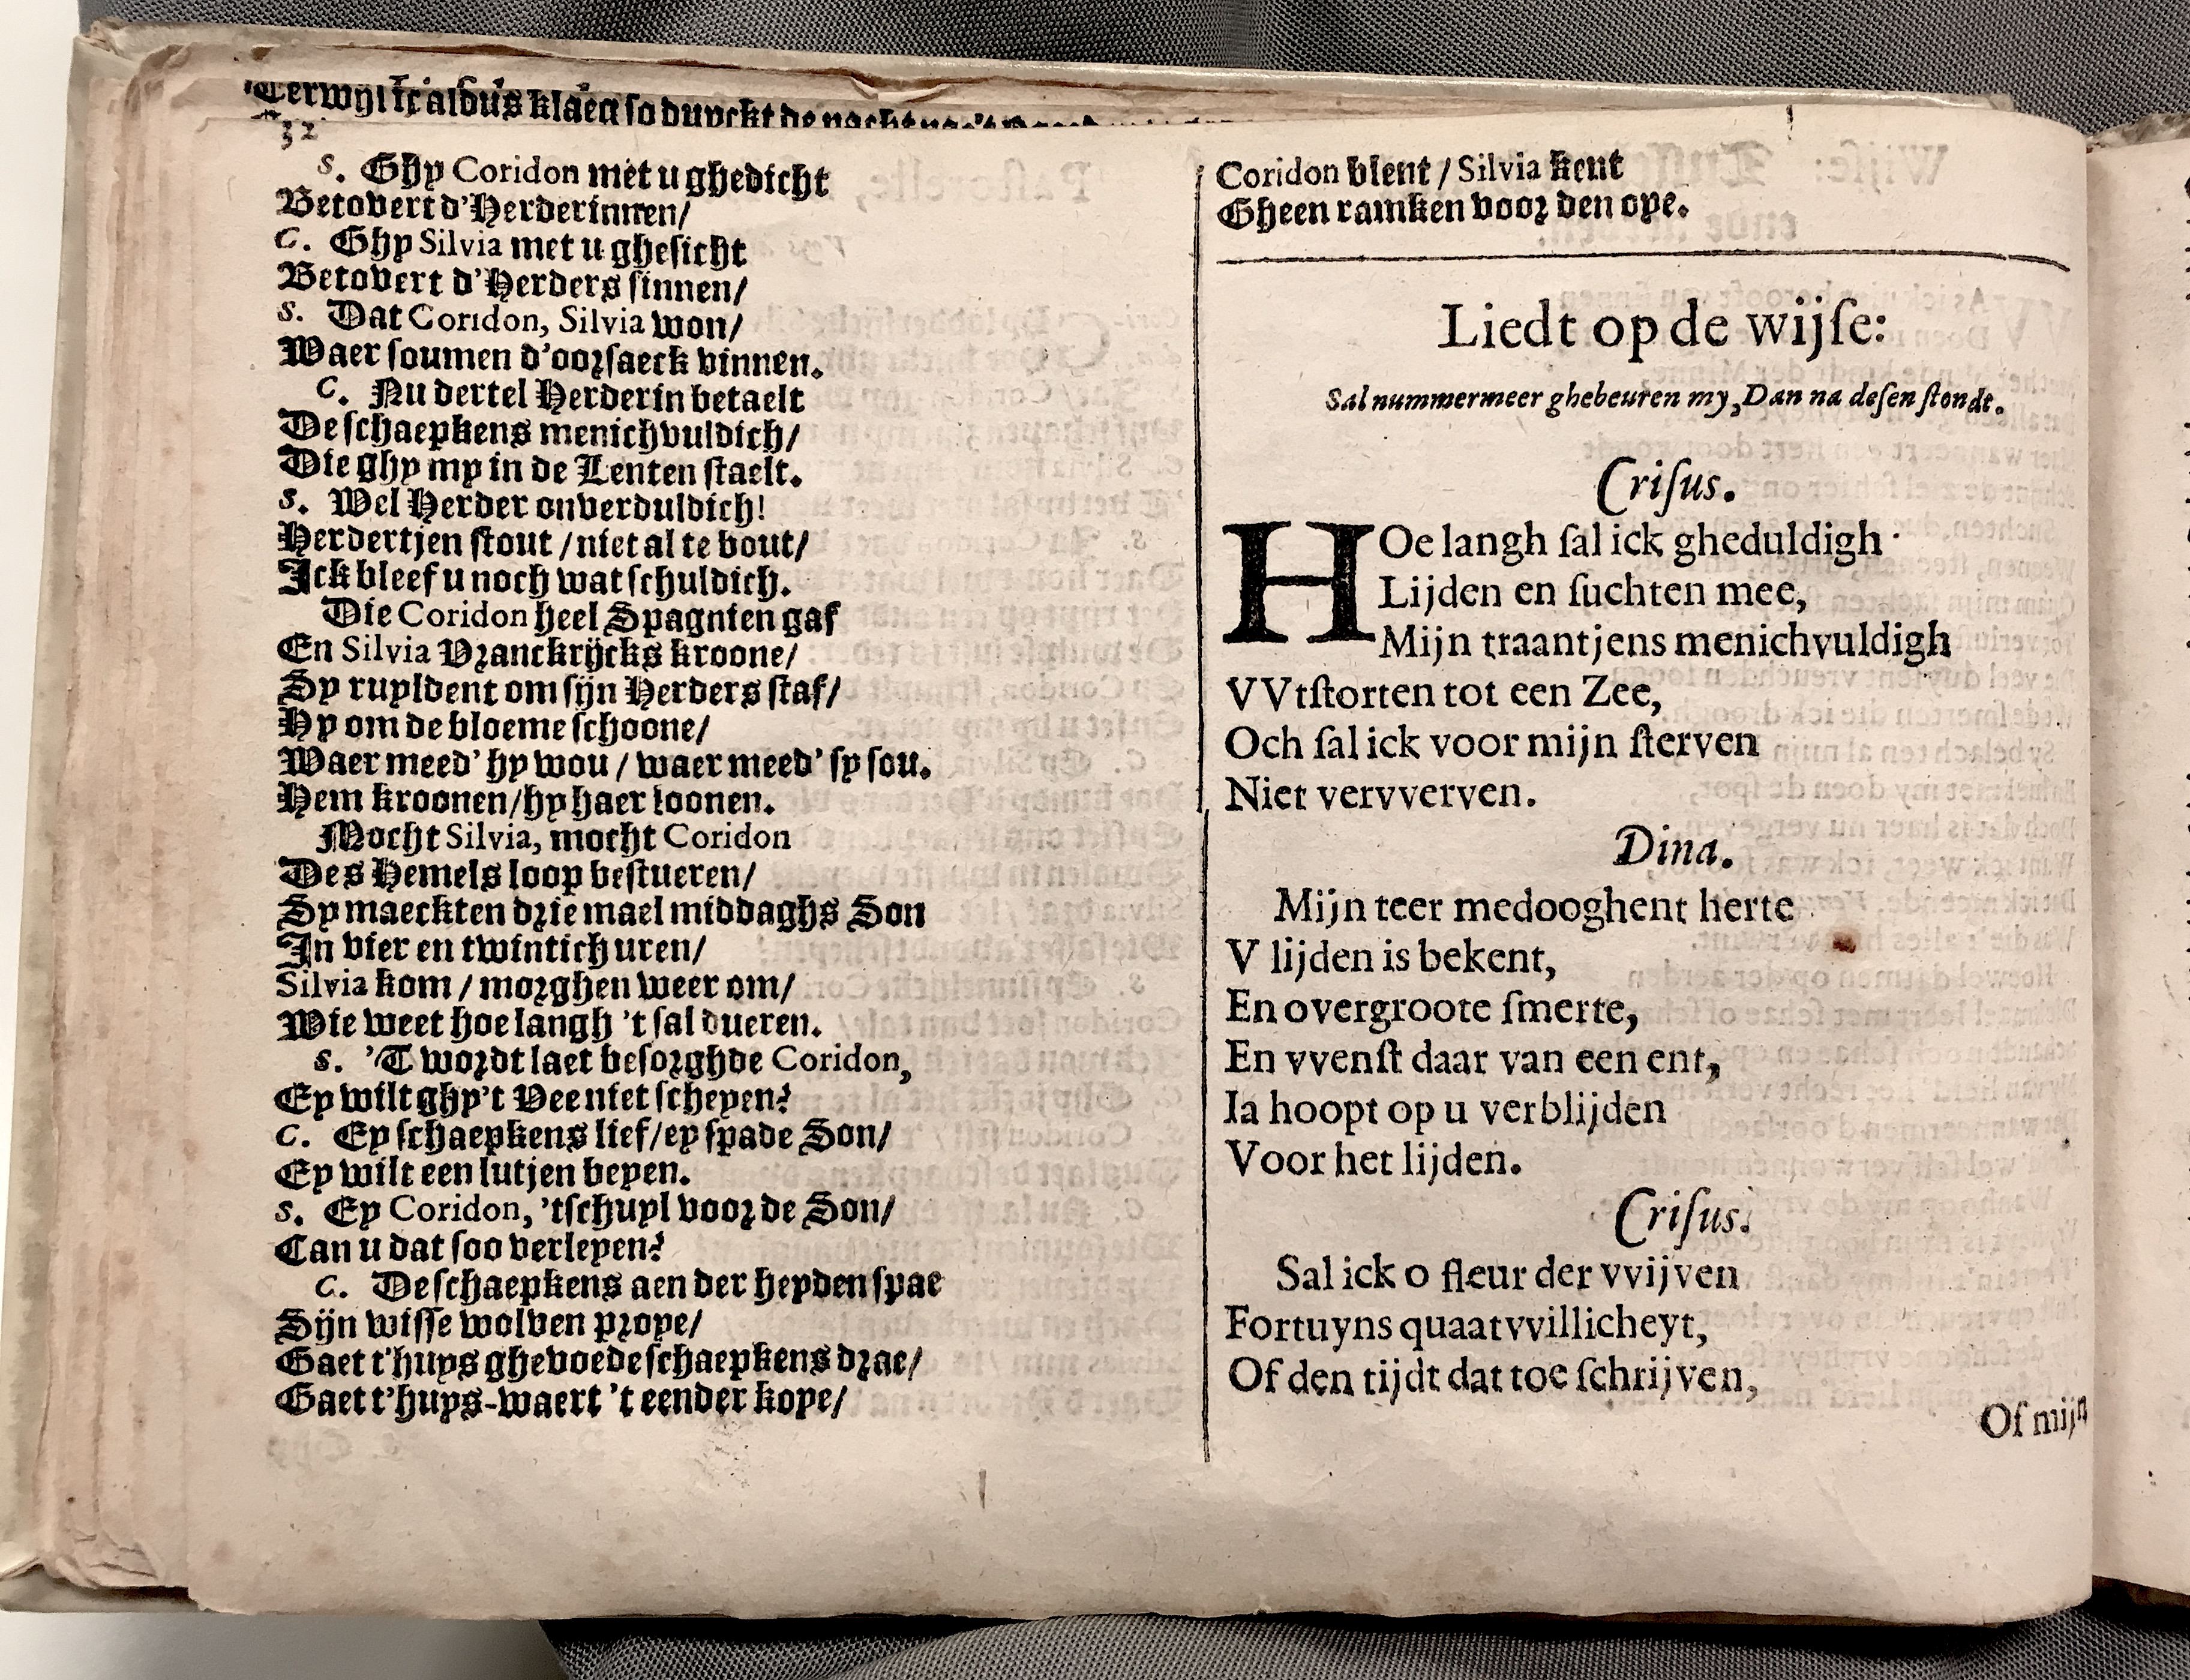 Terwyl ic aldus klaeg so duyckt de nacht
32
S. Ghy Coridon met u ghedicht
Betovert d'Herderinnen/
C. Ghy Silvia met u ghesicht
Betovert d'Herders sinnen/
S. Dat Coridon, Silvia won/
Waer soumen d'oorsaeck vinnen.
C. Nu dertel Herderin betaelt
De schaepkens menichvuldich/
Die ghy my in de Lenten staelt.
S. Wel Herder onverduldich!
Herdertjen stout / niet al te bout/
Ick bleef u noch wat schuldich.
Die Coridon heel Spagnien gaf
En Silvia Vranckrijcks kroone/
Sy ruyldent om sijn Herders staf/
Hy om de bloeme schoone/
Waer meed' hy wou / waer meed' sy sou.
Hem kroonen/hy haer loonen.
Mocht Silvia, mocht Coridon
Des Hemels loop bestueren/
Sy maeckten drie mael middaghs Son
In vier en twintich uren/
Silvia kom / morghen weer om/
Wie weet hoe langh 't sal dueren.
S. 'T wordt laet besorghde Coridon,
Ey wilt ghy't Vee niet scheyen?
C. Ey schaepkens lief/ey spade Son/
Ey wilt een lutjen beyen.
S. Ey Coridon, 'tschuyl voor de Son/
Can u dat soo verleyen?
C. De schaepkens aen der heyden spae
Sijn wisse wolven proye/
Gaet t'huys ghevoede schaepkens drae/
Gaet t'huys-waert 't eender koye/
Coridon blent / Silvia kent
Gheen ramken voor den oye.
Liedt op de wijse:
Sal nummermeer ghebeuren my, Dan na desen stondt.
Crisus.
HOe langh sal ick gheduldigh
Lijden en suchten mee,
Mijn traantjens menichvuldigh
VVtstorten tot een Zee,
Och sal ick voor mijn sterven
Niet vervverven.
Dina.
Mijn teer medooghent herte
V lijden is bekent,
En overgroote smerte,
En vvenst daar van een ent,
Ia hoopt op u verblijden
Voor het lijden.
Crisus.
Sal ick o fleur der vvijven
Fortuyns quaatvvillicheyt,
Of den tijdt dat toe schrijven,
Of mijn